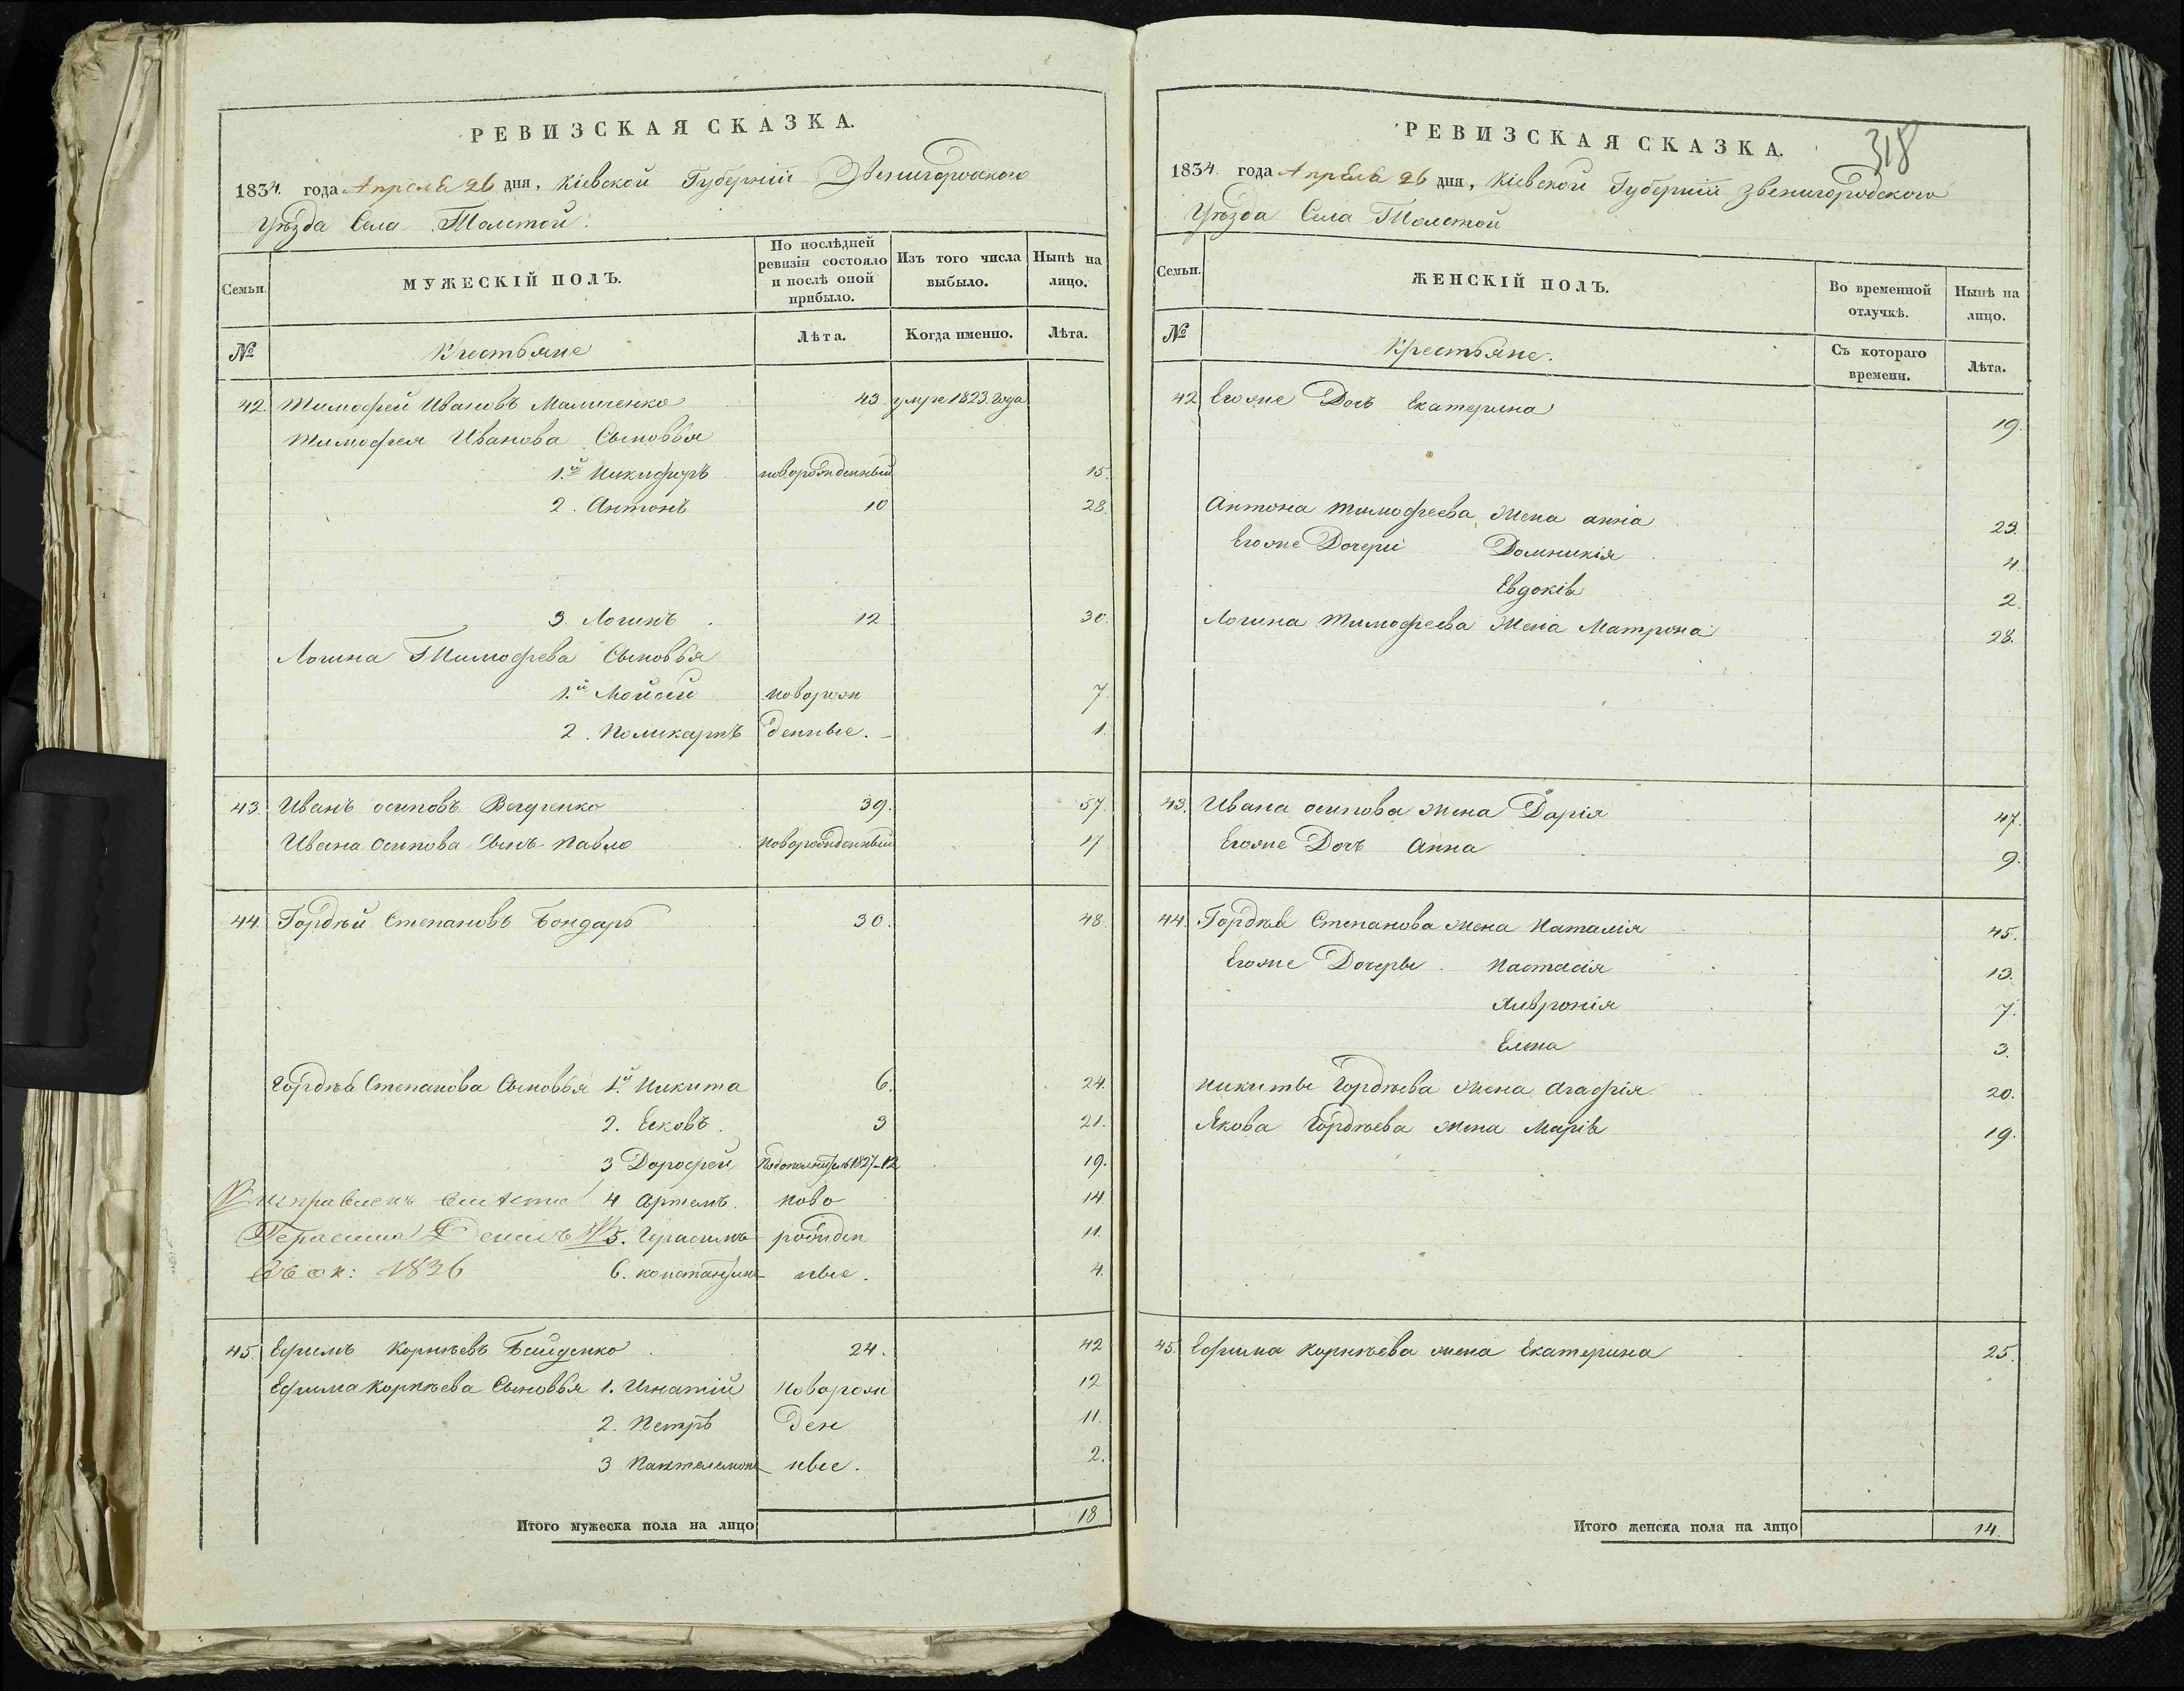 РЕВИЗСКАЯ СКАЗКА.
1834 года Апреля 26 дня, Кіевской Губерніи Звенигородского
Уѣзда Села Толстой.
Семьи.
МУЖЕСКІЙ ПОЛЪ.
По послѣдней ревизіи состояло и послѣ оной прибыло.
Изъ того числа выбыло.
Нынѣ на лицо.
№
Крестьяне
Лѣта.
Когда именно.
Лѣта.
42. Тимофей Ивановъ 43 умре 1823 года
Тимофея Иванова Сыновья
1.й Никифоръ новорожденный 15.
2. Антонъ 10 28.
3. Логинъ 12 30.
Логина Тимофеева Сыновья
1.й Мойсей новорож 7.
2. Поликарпъ денные. 1.
43. Иванъ осиповъ 39. 57.
Ивана Осипова Сынъ Павло новорожденный 17
44. Гордѣй Степановъ Бондарь 30. 48.
Гордѣя Степанова Сыновья 1.й Никита 6. 24.
2. Яковъ. 3 21.
3 Дорофей 1827 12 19.
исправленъ вместо 4 Артемъ. ново 14
Герасима Денисъ 5. Герасимъ рожден 11.
1836 6. константинъ ные. 4.
45. Ефимъ Корнѣевъ 24. 42
Ефима Корнѣева Сыновья 1. Игнатій новорож 12
2. Петръ ден 11.
3 Пантелемонъ ные. 2.
Итого мужеска пола на лицо 18
РЕВИЗСКАЯ СКАЗКА.
318
1834 года Апреля 26 дня, Кіевской Губерніи Звенигородского
Уѣзда Села Толстой
Семьи.
ЖЕНСКІЙ ПОЛЪ.
Во временной отлучкѣ.
Нынѣ на лицо.
№
Крестьяне.
Съ котораго времени.
Лѣта.
42 Егоже Дочь Екатерина 19.
Антона Тимофеева Жена анна 23.
Егоже Дочери Домникія 4.
Евдокія 2.
Логина Тимофеева Жена Матрона 28.
43. Ивана осипова Жена Дарія 47.
Егоже Дочь Анна 9.
44. Гордѣя Степанова Жена Наталія 45.
Егоже Дочеры. Настасія 13.
Хивронія 7.
Елена 3.
Никиты Гордѣева Жена Агафія 20.
Якова Гордѣева Жена Марія 19.
45. Ефима Корнѣева жена Екатерина 25.
Итого женска пола на лицо 14.